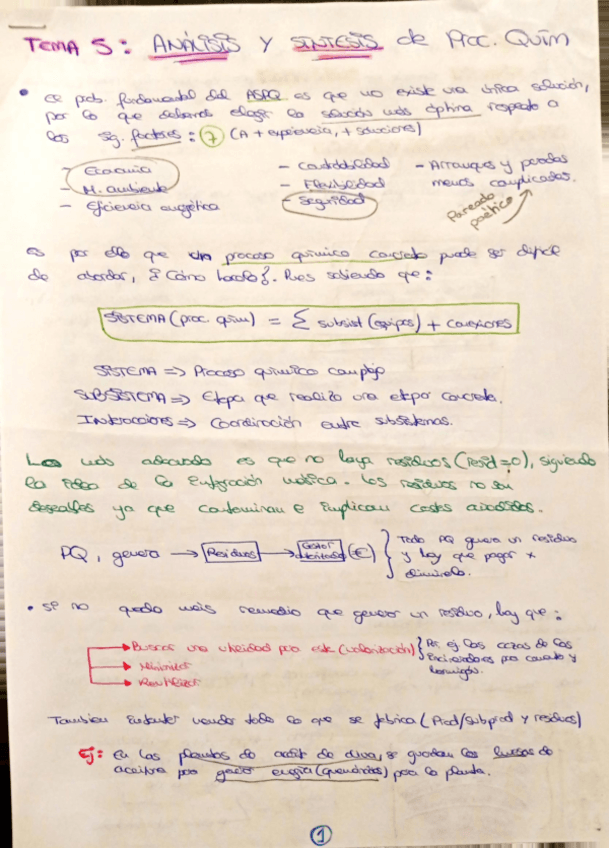 TEMA 5: ANÁLISIS Y SÍNTESIS de Proc. QUÍM
• El prob. fundamental del ASPQ es que no existe una única solución,
por lo que debemos elegir la solución más óptima respecto a
los sg. factores: 7 (A + experiencia, + soluciones)
- Economía
- Controlabilidad
- Arranques y paradas
menos complicadas.
- M. ambiente
- Flexibilidad
- Eficiencia energética
- Seguridad
Pareado
poético
es por ello que un proceso químico concreto puede ser difícil
de abordar, ¿Cómo hacerlo?. Pues sabiendo que:
SISTEMA (proc quím) = Σ subsist (equipos) + conexiones
SISTEMA => Proceso químico complejo
SUBSISTEMA => Etapa que realiza una etapa concreta.
Interacciones => Coordinación entre subsistemas.
Lo más adecuado es que no haya residuos (resid = 0), siguiendo
la idea de la integración másica. Los residuos no son
deseables ya que contaminan e implican costes añadidos.
PQ, genera → Residuos → Gestor autorizado (€)
Todo PQ genera un residuo
y hay que pagar x
eliminarlo.
• Si no queda más remedio que generar un residuo, hay que:
Buscar una utilidad para este (valorización)
Por ej las cenizas de las
incineradoras para cemento y
hormigón.
Minimizar
Reutilizar
Tambien intentar vender todo lo que se fabrica (Prod/subprod y residuos)
Ej: En las plantas de aceite de oliva, se guardan los huesos de
aceituna para generar energía (quemándolos) para la planta.
1